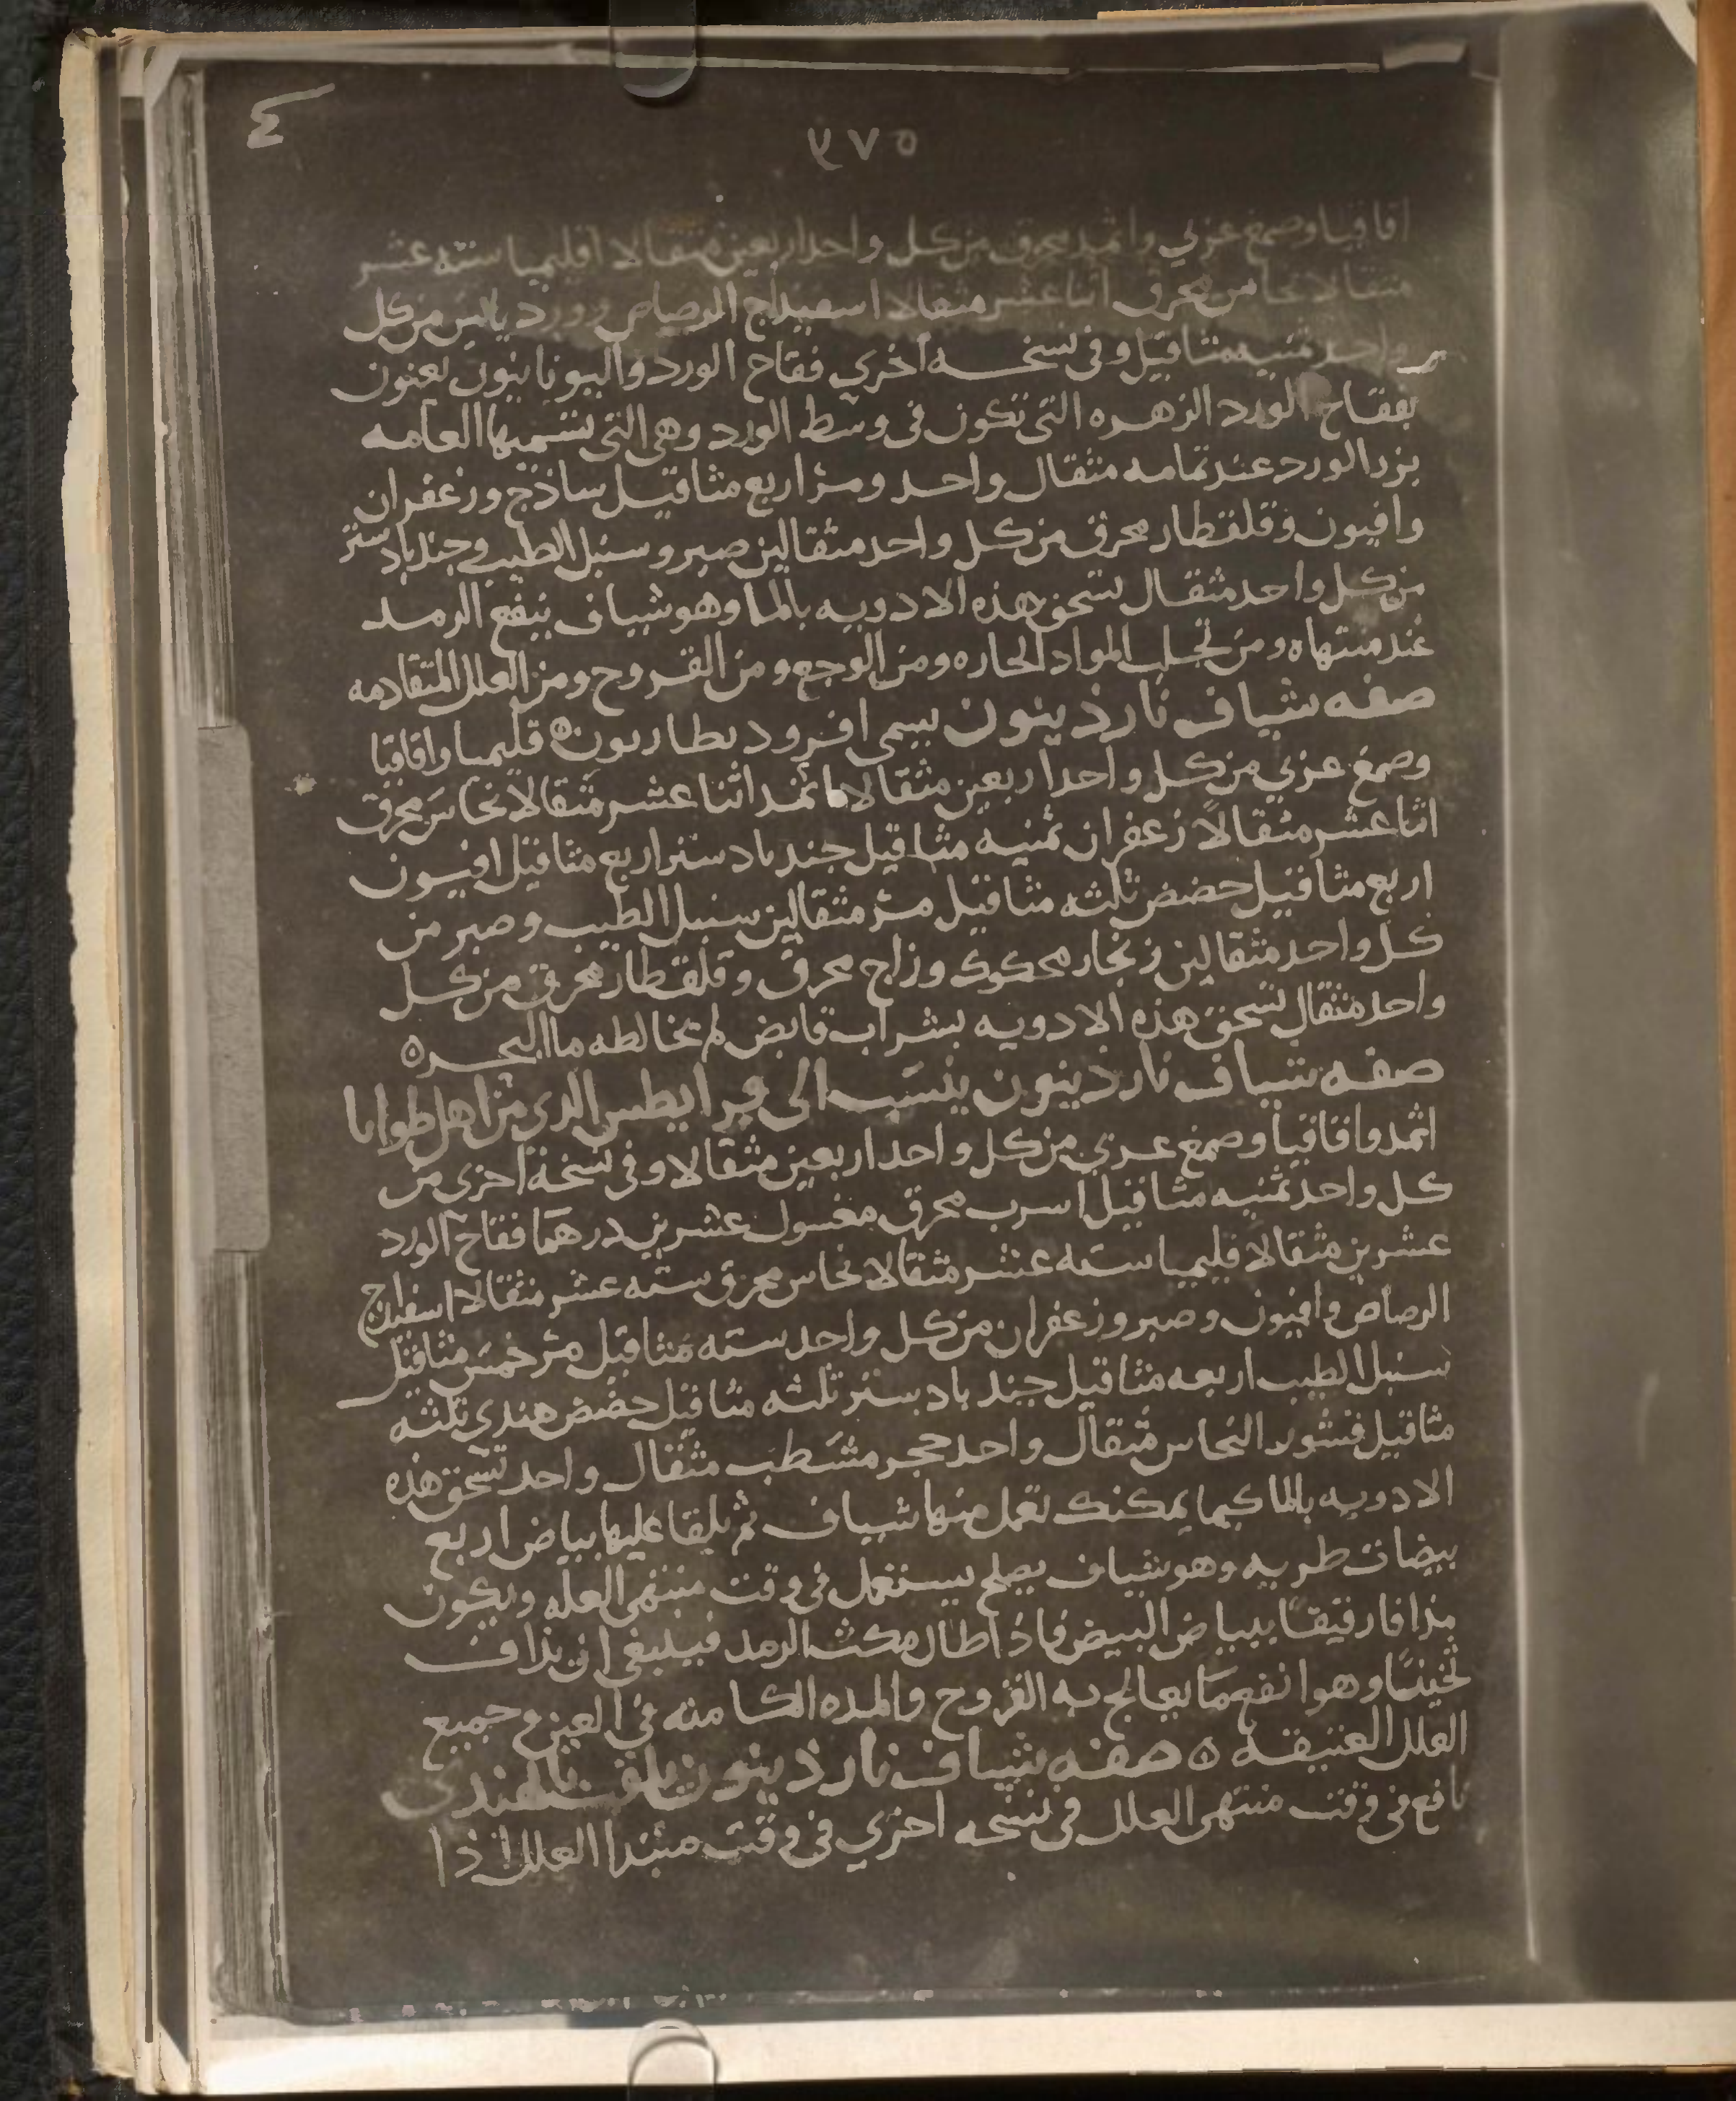 ٤
٥٧٧
اقاقيا وصمغ عربي واثمد محرق من كل واحد اربعين مثقالا اقليميا سته عشر
مثقالا نحاس محرق اثناعشر مثقالا اسفيداج الرصاص وورد يابس من كل
واحد ثمنيه مثاقيل وفي نسخه اخري فقاح الورد واليونانيون يعنون
بفقاح الورد الزهره التي تكون في وسط الورد وهي التي تسميها العامه
بزر الورد عند تمامه مثقال واحد ومر اربع مثاقيل ساذج وزعفران
وافيون وقلقطار محرق من كل واحد مثقالين صبر وسنبل الطيب وجندبادستر
من كل واحد مثقال تسحق هذه الادويه بالما وهو شياف ينفع الرمد
عند منتهاه ومن تجلب المواد الحاره ومن الوجع ومن القروح ومن العلل المتقادمه
صفه شياف ناردينون يسمى افروديطاريون ه قليميا واقاقيا
وصمغ عربي من كل واحد اربعين مثقالا اثمد اثنا عشر مثقالا نحاس محرق
اثنا عشر مثقالا زعفران ثمنيه مثاقيل جندبادستر اربع مثاقيل افيون
اربع مثاقيل حضض ثلثه مثاقيل مر مثقالين سنبل الطيب وصبر من
كل واحد مثقالين زنجار محكوك وزاج محرق وقلقطار محرق من كل
واحد مثقال تسحق هذه الادويه بشراب قابض لم يخالطه ما البحر ه
صفه شياف ناردينون ينسب الى الذي من اهل
اثمد واقاقيا وصمغ عربي من كل واحد اربعين مثقالا وفي نسخة اخرى من
كل واحد ثمنيه مثاقيل اسرب محرق مغسول عشرين درهما فقاح الورد
عشرين مثقالا قليميا سته عشر مثقالا نحاس محرق سته عشر مثقالا اسفيداج
الرصاص وافيون وصبر وزعفران من كل واحد سته مثاقيل مر خمس مثاقيل
سنبل الطيب اربعه مثاقيل جندبادستر ثلثه مثاقيل حضض هندي ثلثه
مثاقيل قشور النحاس مثقال واحد حجر مشطب مثقال واحد تسحق هذه
الادويه بالما كيما يمكنك تعمل منها شياف ثم يلقا عليها بياض اربع
بيضات طريه وهو شياف يصلح يستعمل في وقت منتهى العله ويكون
مذافا رقيقا ببياض البيض فاذا طال مكث الرمد فينبغي ان يذاف
ثخينا وهو انفع ما يعالج به القروح والمده الكامنه في العين وجميع
العلل العتيقه ه صفه شياف ناردينون يلقب بالهندي
نافع في وقت منتهى العلل في نسخه اخري في وقت مبتدا العلل اذا